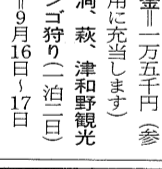 金＝一万五千円（参
用に充当します）
洞、萩、津和野観光
ンゴ狩り（一泊二日）
＝9月16日～17日